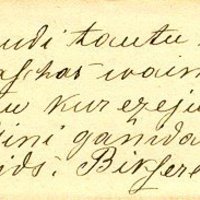 udi tautu
af, has wain
u kur ezeju
ini gańida
ids. Bikfere